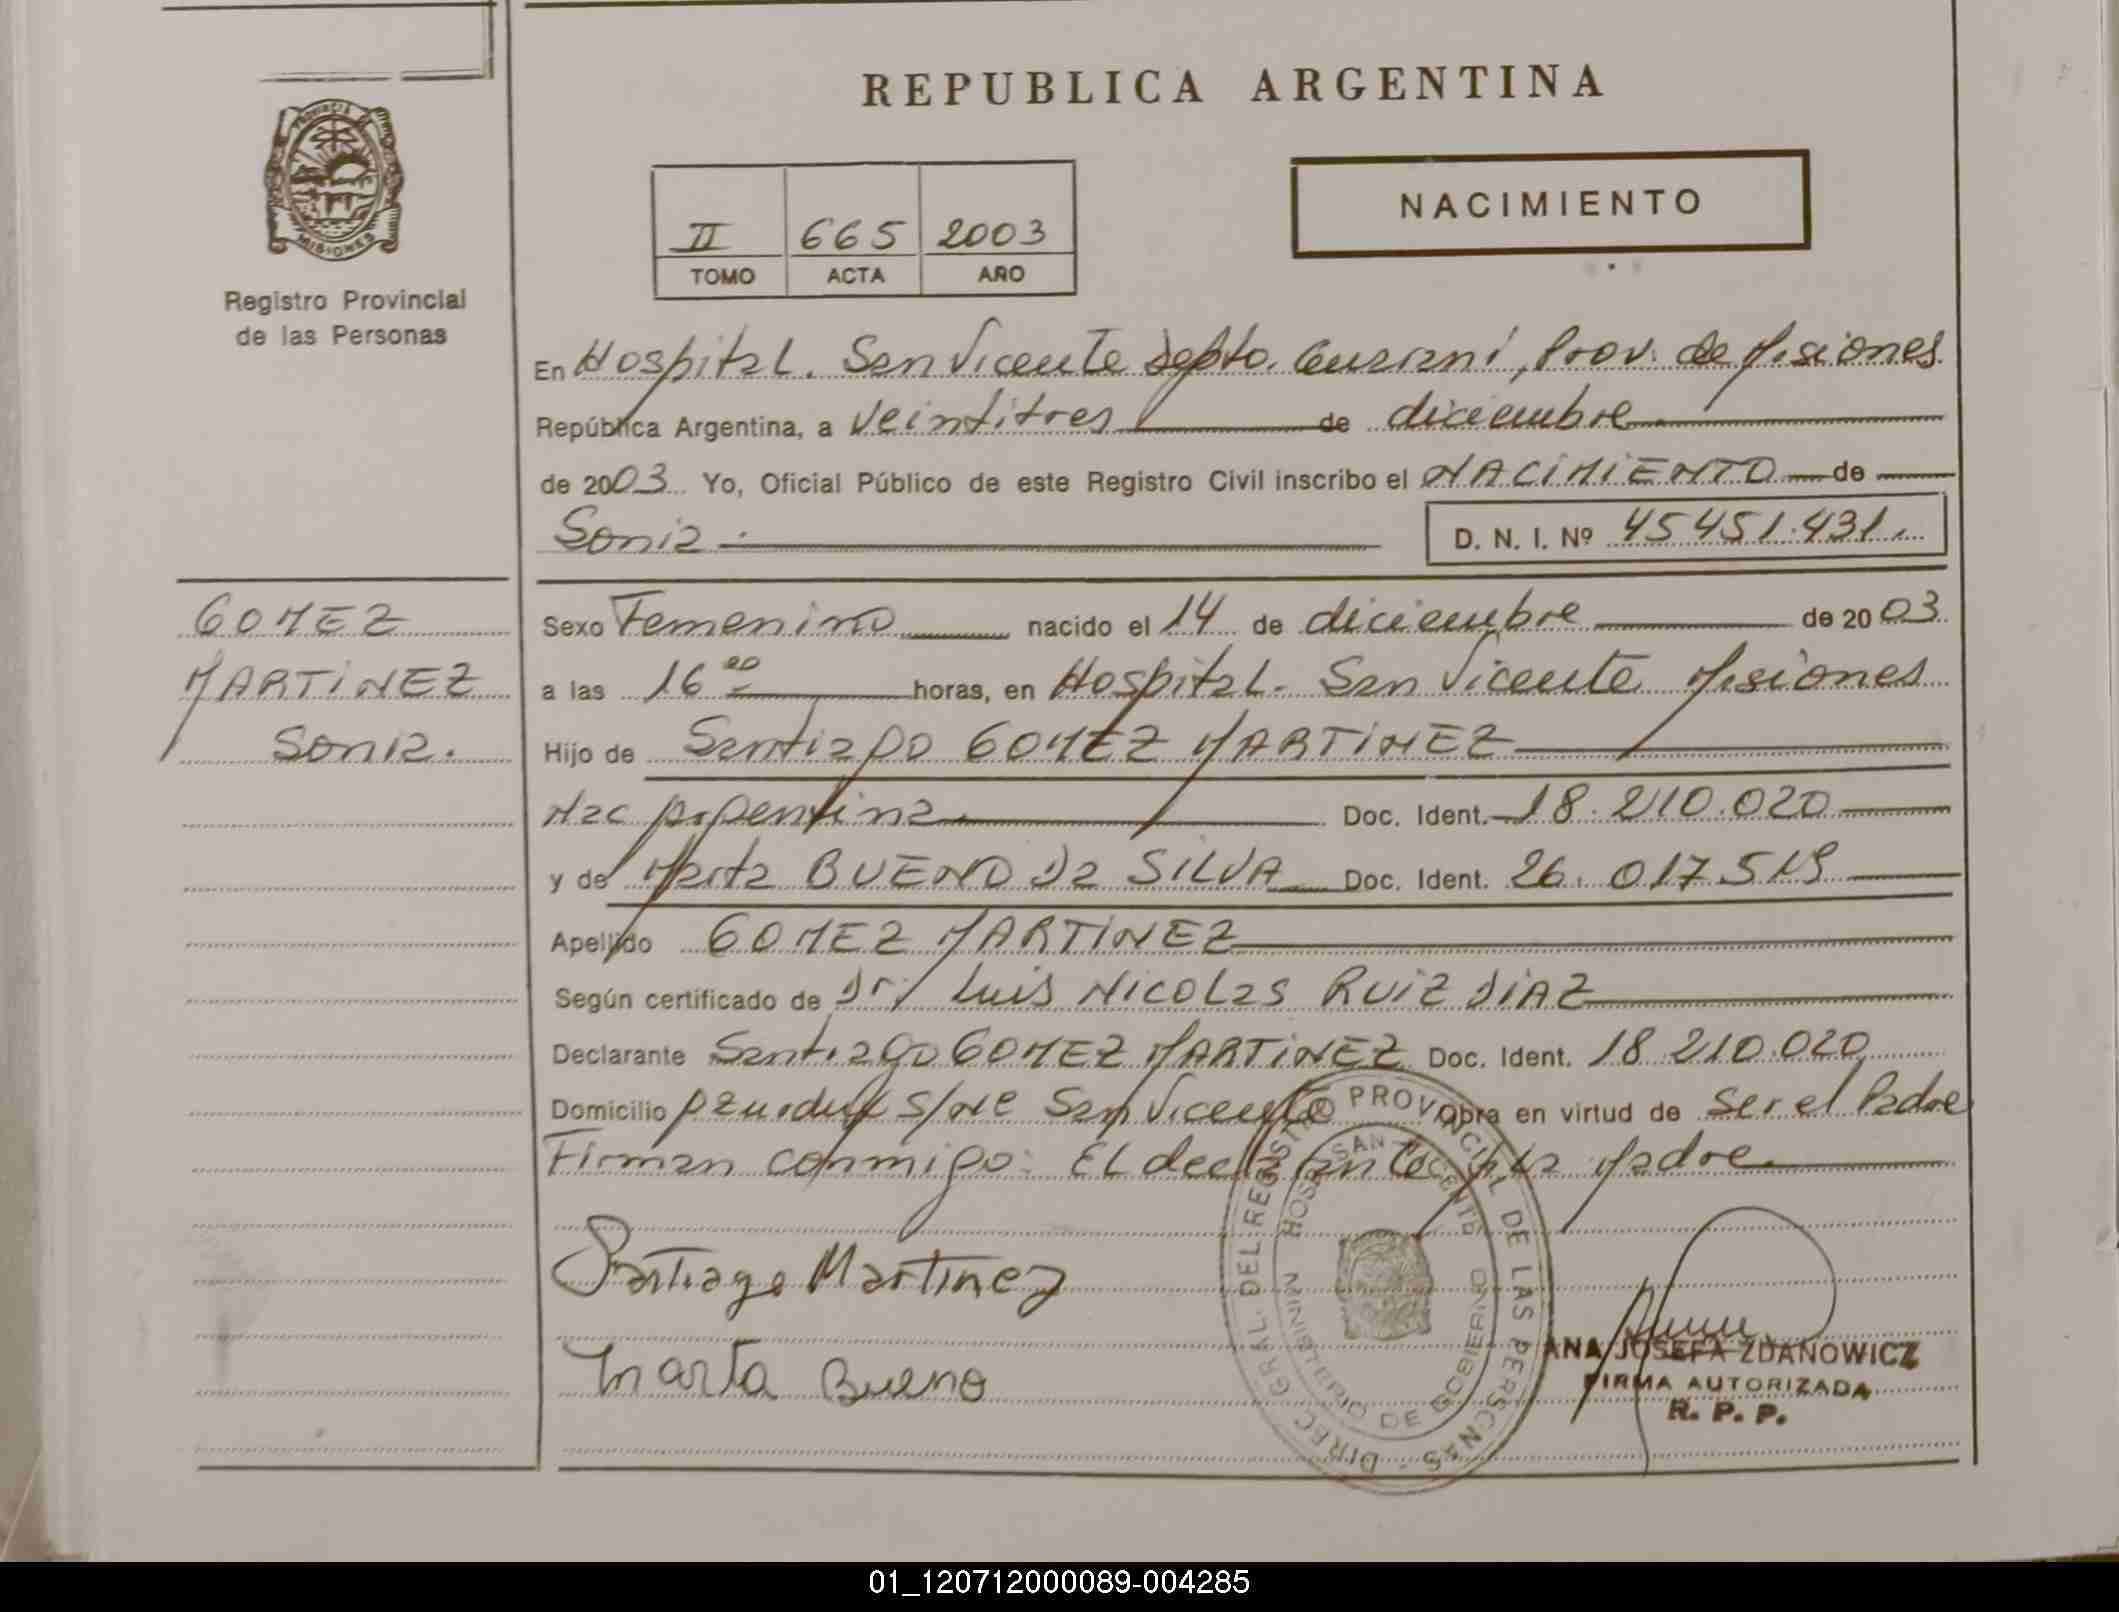 REPUBLICA ARGENTINA
PROVINCIA DE
MISIONES
Registro Provincial
de las Personas
II 665 2003
TOMO ACTA AÑO
NACIMIENTO
En Hospital. San Vicente Depto. Guaraní, Prov. de Misiones
República Argentina, a veintitres de diciembre
de 2003 Yo, Oficial Público de este Registro Civil inscribo el NACIMIENTO de
Sonia.
D. N. I. Nº 45451.431.
GOMEZ
MARTINEZ
Sonia.
Sexo Femenino nacido el 14 de diciembre de 2003
a las 16 horas, en Hospital. San Vicente Misiones
Hijo de Santiago GOMEZ MARTINEZ
Nac Argentina. Doc. Ident. 18.210.020
y de Marta BUENO Da SILVA Doc. Ident. 26.017.519
Apellido GOMEZ MARTINEZ
Según certificado de Dr. Luis Nicolas RUIZ DIAZ
Declarante Santiago GOMEZ MARTINEZ Doc. Ident. 18.210.020
Domicilio s/Nº San Vicente Obra en virtud de ser el Padre
Firman conmigo: El declarante y la Madre.
Santiago Martinez
Marta Bueno
DIREC. GRAL. DEL REGISTRO PROVINCIAL DE LAS PERSONAS
HOSP. SAN VICENTE
MINISTERIO DE GOBIERNO
ANA JOSEFA ZDANOWICZ
FIRMA AUTORIZADA
R. P. P.
01_120712000089-004285